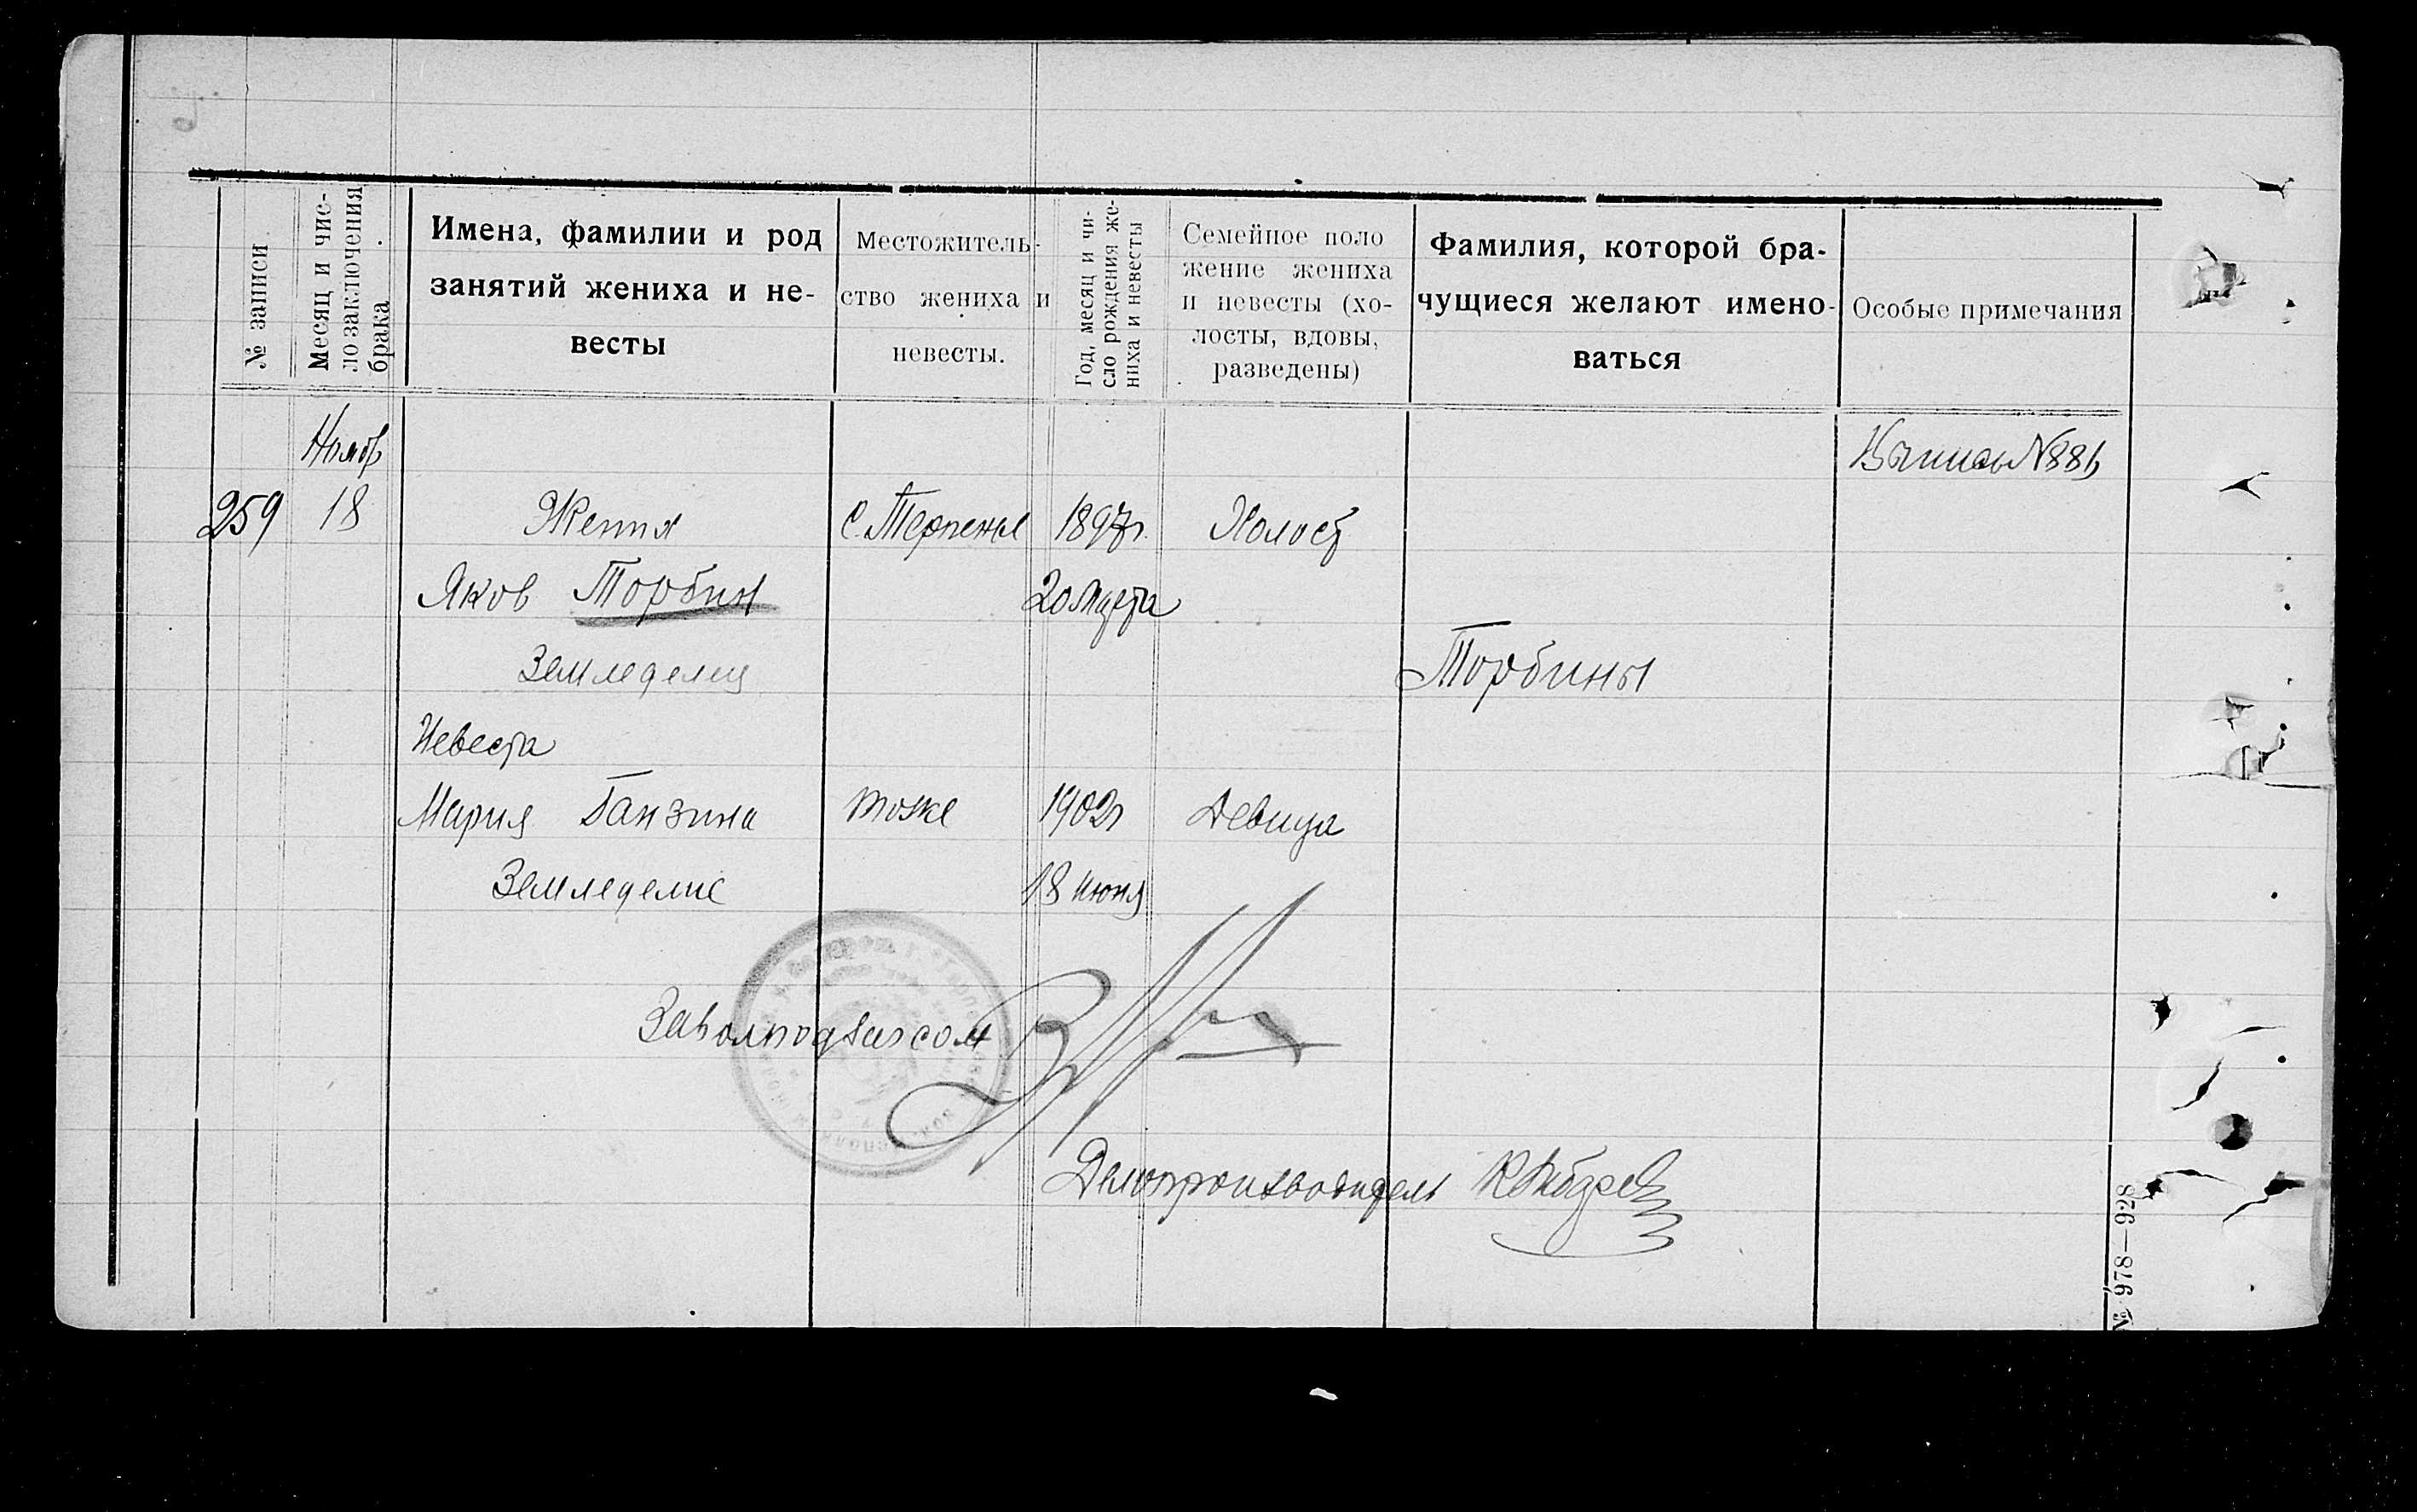 № записи
Месяц и чис-
ло заключения
брака
Имена, фамилии и род
занятий жениха и не-
весты
Местожитель-
ство жениха и
невесты.
Год, месяц и чи-
сло рождения же-
ниха и невесты
Семейное поло
жение жениха
и невесты (хо-
лосты, вдовы,
разведены)
Фамилия, которой бра-
чущиеся желают имено-
ваться
Особые примечания
259
18
Жених
Яков Торбин
Земледелец
С. Терпенье
1897г.
20 Марта
Холост
Торбины
Невеста
Мария Ганзина
Земледелие
тоже
1902г
18 июня
Девица
Делопроизводитель
№ 978—928